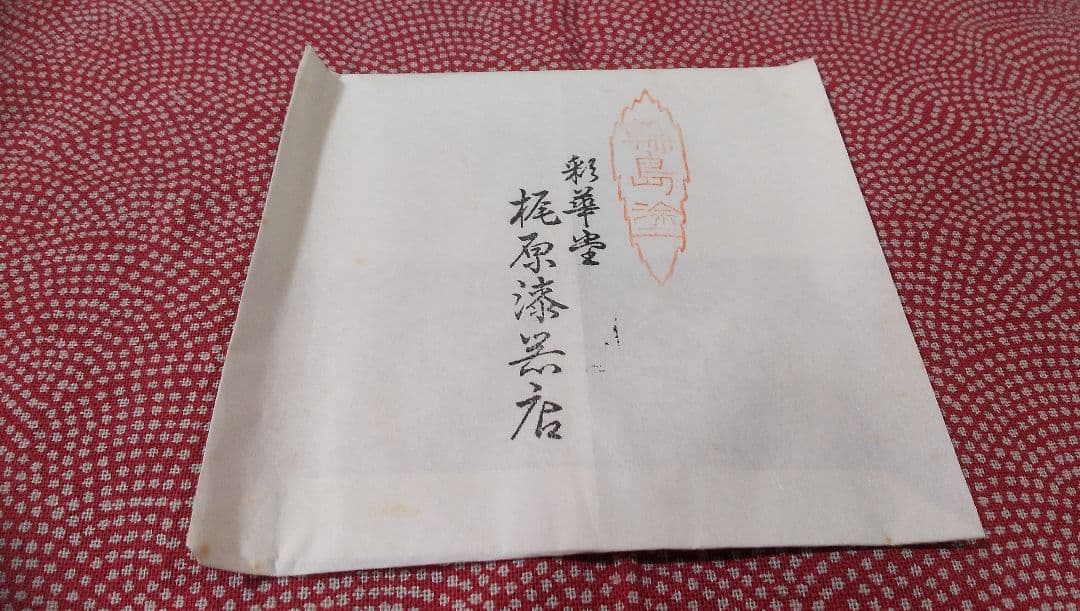 輪島塗
彩華堂
梶原漆器店